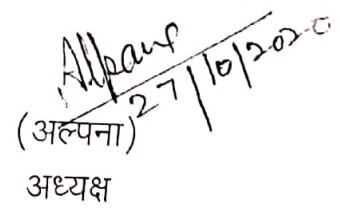 Alpana
27/10/2020
(अल्पना)
अध्यक्ष